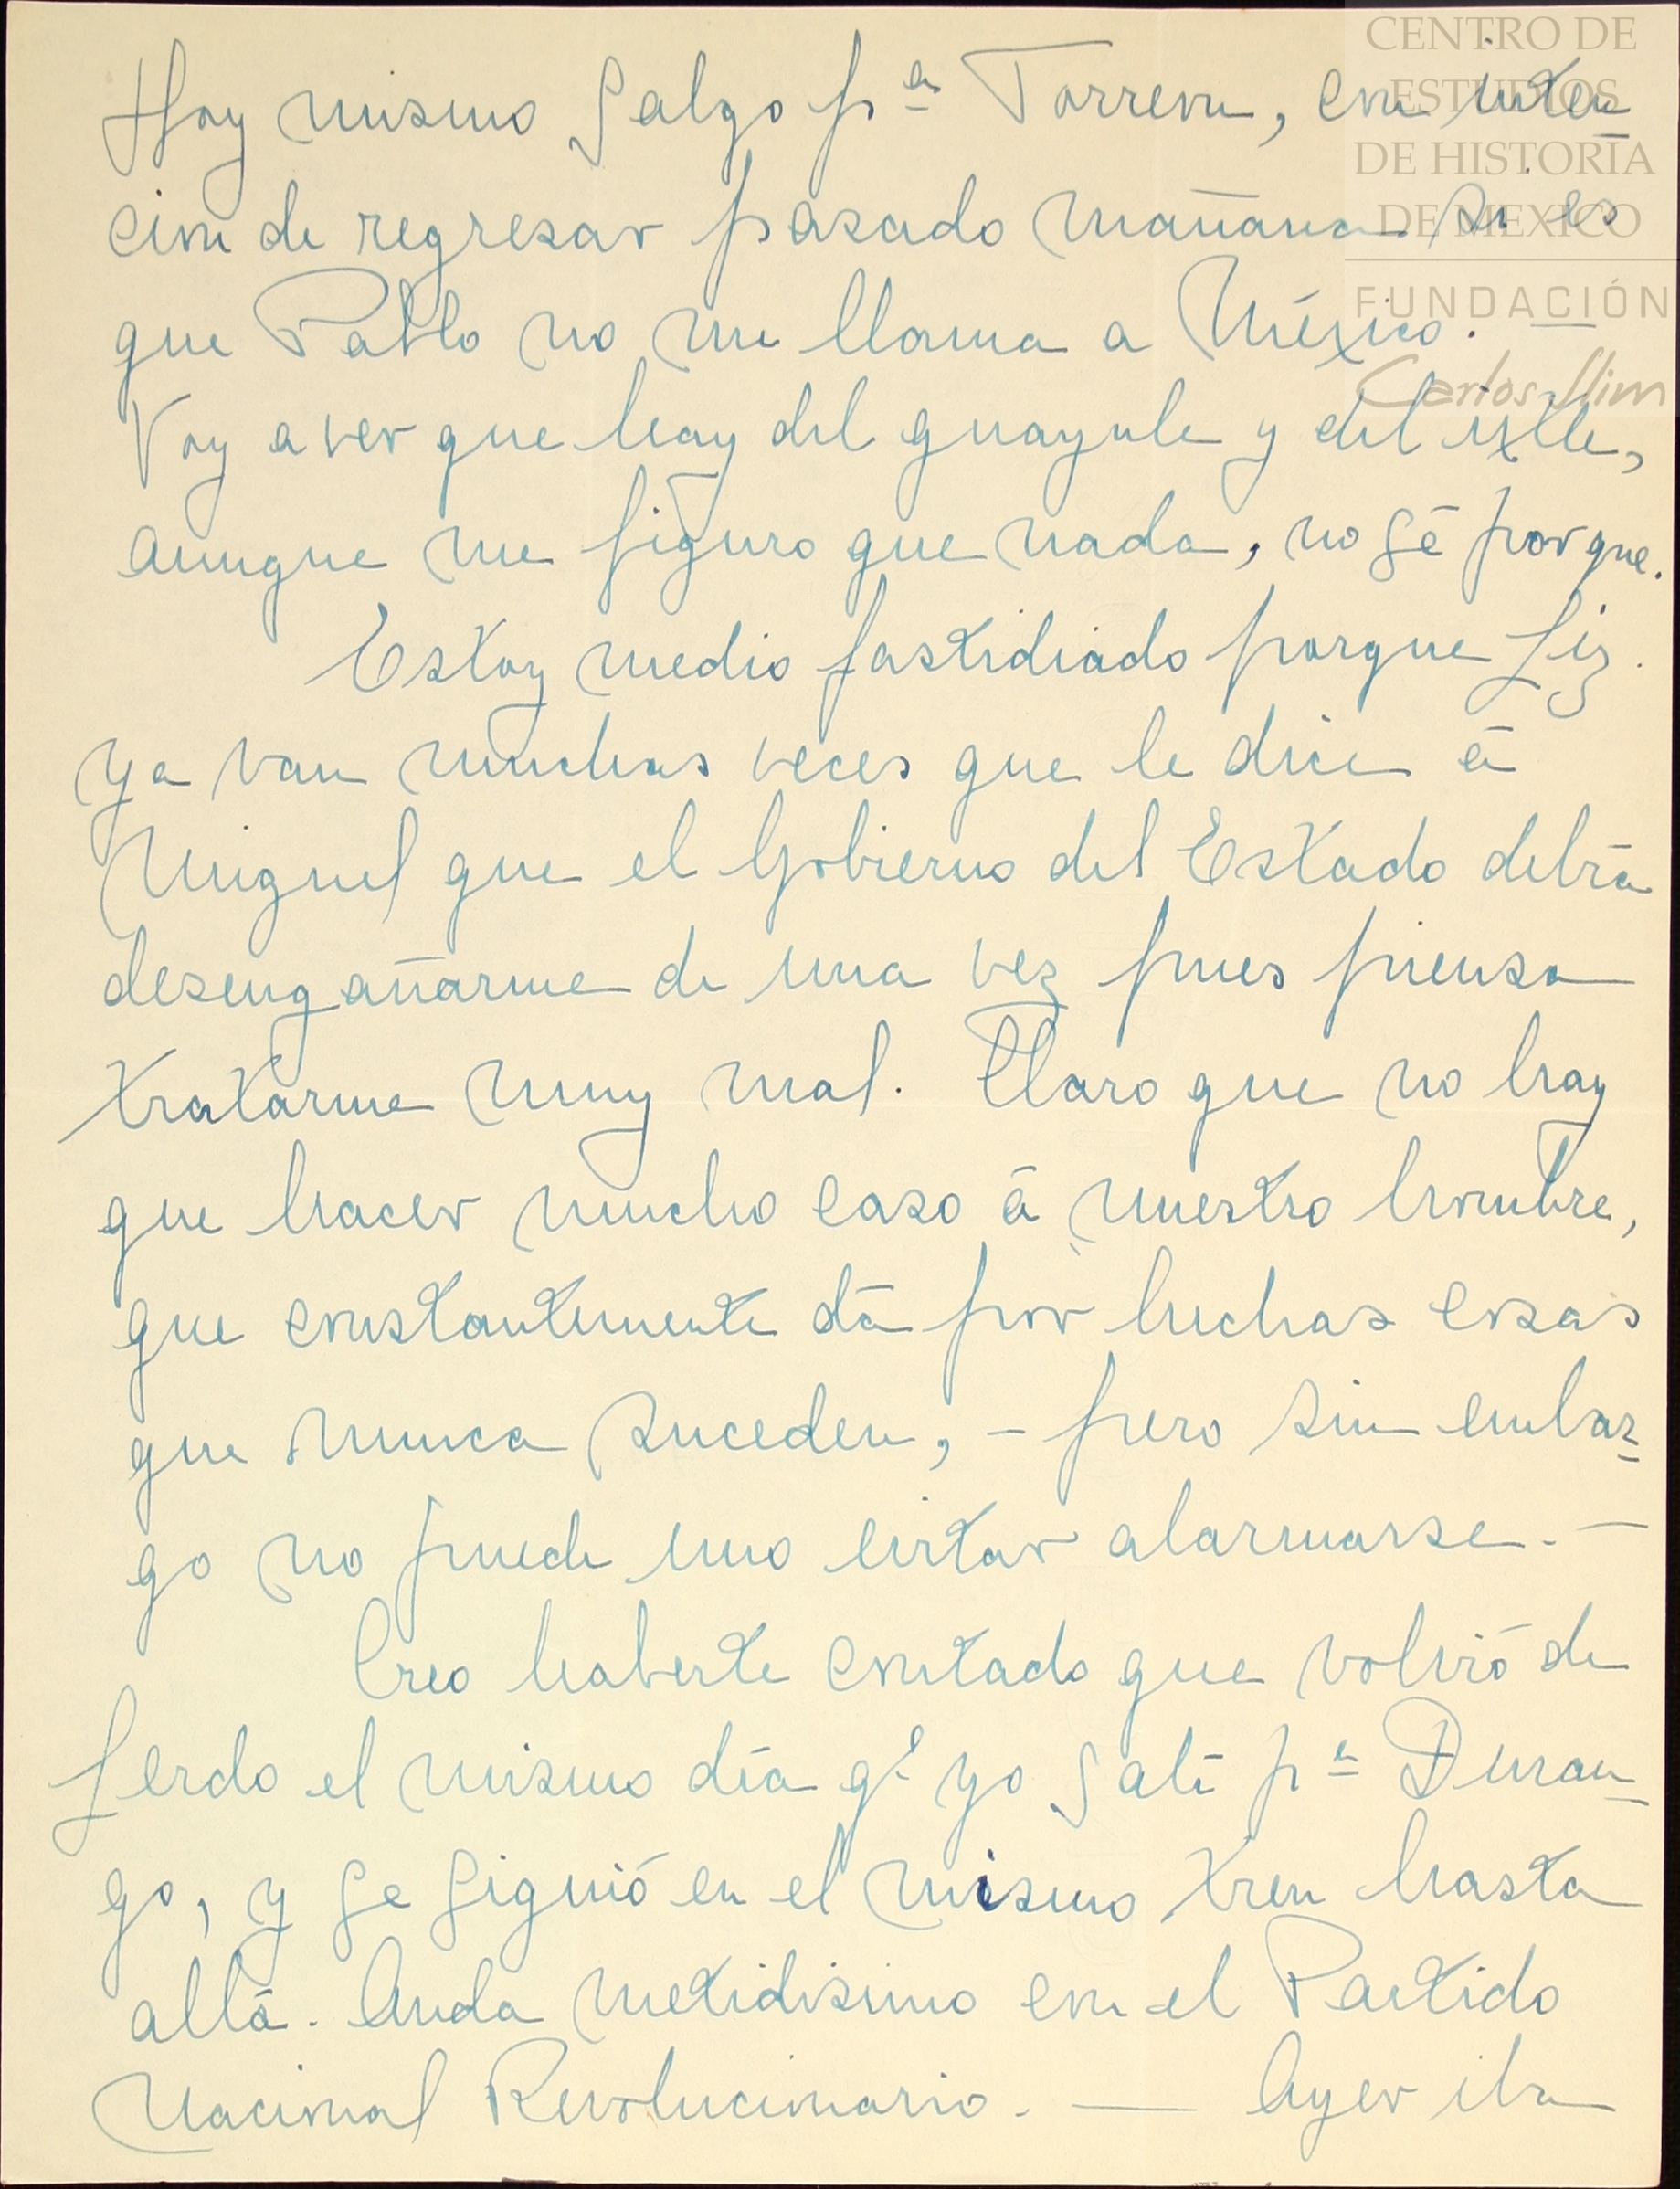 CENTRO DE
ESTUDIOS
DE HISTORIA
DE MEXICO
FUNDACIÓN
Carlos Slim
Hoy mismo salgo pª Torreon, con inten
cion de regresar pasado mañana si es
que Pablo no me llama a México. —
Voy a ver que hay del guayule y del ixtle,
aunque me figuro que nada, no sé porque.
Estoy medio fastidiado porque Liz.
ya van muchas veces que le dice á
Miguel que el Gobierno del Estado debrá
desengañarme de una vez pues piensa
tratarme muy mal. Claro que no hay
que hacer mucho caso á nuestro hombre,
que constantemente dá por hechas cosas
que nunca suceden, – pero sin embar
go no puede uno evitar alarmarse. —
Creo haberte contado que volvió de
Lerdo el mismo día qe yo salí pª Duran
go, y se siguió en el mismo tren hasta
allá. Anda metidisimo con el Partido
Nacional Revolucionario. — Ayer iba